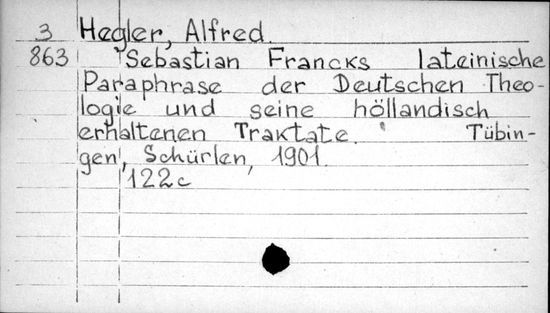 3 Hegler, Alfred.
863 Sebastian Francks lateinische
Paraphrase der Deutschen Theo-
logie und seine höllandisch
erhaltenen Traktate. Tübin-
gen, Schürlen, 1901.
122c